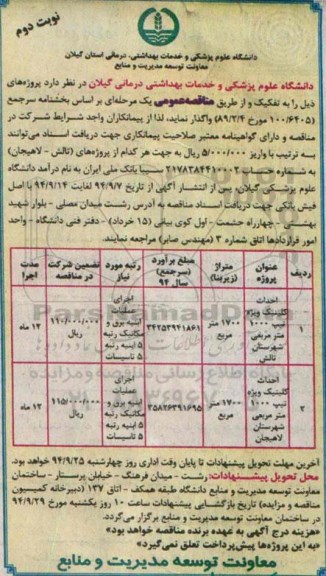 نوبت دوم
دانشگاه علوم پزشکی و خدمات بهداشتی، درمانی استان گیلان
معاونت توسعه مدیریت و منابع
دانشگاه علوم پزشکی و خدمات بهداشتی درمانی گیلان در نظر دارد پروژه‌های
ذیل را به تفکیک و از طریق مناقصه عمومی یک مرحله‌ای بر اساس بخشنامه سرجمع
(۱۰۰/۶۴۰۵ مورخ ۸۹/۲/۴) واگذار نماید، لذا از پیمانکاران واجد شرایط شرکت در
مناقصه و دارای گواهینامه معتبر صلاحیت پیمانکاری جهت دریافت اسناد می‌توانند
به ترتیب با واریز ۵/۰۰۰/۰۰۰ ریال به جهت هر کدام از پروژه‌های (تالش - لاهیجان)
به شماره حساب ۲۱۷۸۳۸۴۴۱۰۰۰۲ سیبا بانک ملی ایران به نام درآمد دانشگاه
علوم پزشکی گیلان، پس از انتشار آگهی از تاریخ ۹۴/۹/۷ لغایت ۹۴/۹/۱۴ با اصل
فیش بانکی جهت دریافت اسناد مناقصه به آدرس رشت میدان مصلی - بلوار شهید
بهشتی - چهارراه حشمت - اول کوی بیانی (۱۵ خرداد) - دفتر فنی دانشگاه - واحد
امور قراردادها اتاق شماره ۳ (مهندس صابر) مراجعه نمایند.
ردیف عنوان پروژه متراژ (زیربنا) مبلغ برآورد (سرجمع) سال ۹۴ رتبه مورد نیاز تضمین شرکت در مناقصه مدت اجرا
۱ احداث کلینیک ویژه تیپ ۱۰۰۰ متر مربعی شهرستان تالش ۱۷۰۰ متر مربع ۳۴۲۵۳۹۴۱۸۶۱ اجرای عملیات ابنیه برق و مکانیک رتبه ۵ ابنیه رتبه ۵ تاسیسات ۱۱۰/۰۰۰/۰۰۰ ریال ۱۲ ماه
۲ احداث کلینیک ویژه تیپ ۱۰۰۰ متر مربعی شهرستان لاهیجان ۱۷۰۰ متر مربع ۳۵۸۲۶۳۹۱۶۹۵ اجرای عملیات ابنیه برق و مکانیک رتبه ۵ ابنیه رتبه ۵ تاسیسات ۱۱۵/۰۰۰/۰۰۰ ریال ۱۲ ماه
آخرین مهلت تحویل پیشنهادات تا پایان وقت اداری روز چهارشنبه ۹۴/۹/۲۵ خواهد بود.
محل تحویل پیشنهادات: رشت - میدان فرهنگ - خیابان پرستار - ساختمان
معاونت توسعه مدیریت و منابع دانشگاه طبقه همکف - اتاق ۱۳۷ (دبیرخانه کمیسیون
مناقصه و مزایده) تاریخ بازگشایی پیشنهادات ساعت ۱۰ روز یکشنبه مورخ ۹۴/۹/۲۹
در ساختمان معاونت توسعه مدیریت و منابع برگزار می‌گردد.
«هزینه درج آگهی به عهده برنده مناقصه خواهد بود»
«به این پروژه‌ها پیش‌پرداخت تعلق نمی‌گیرد»
معاونت توسعه مدیریت و منابع